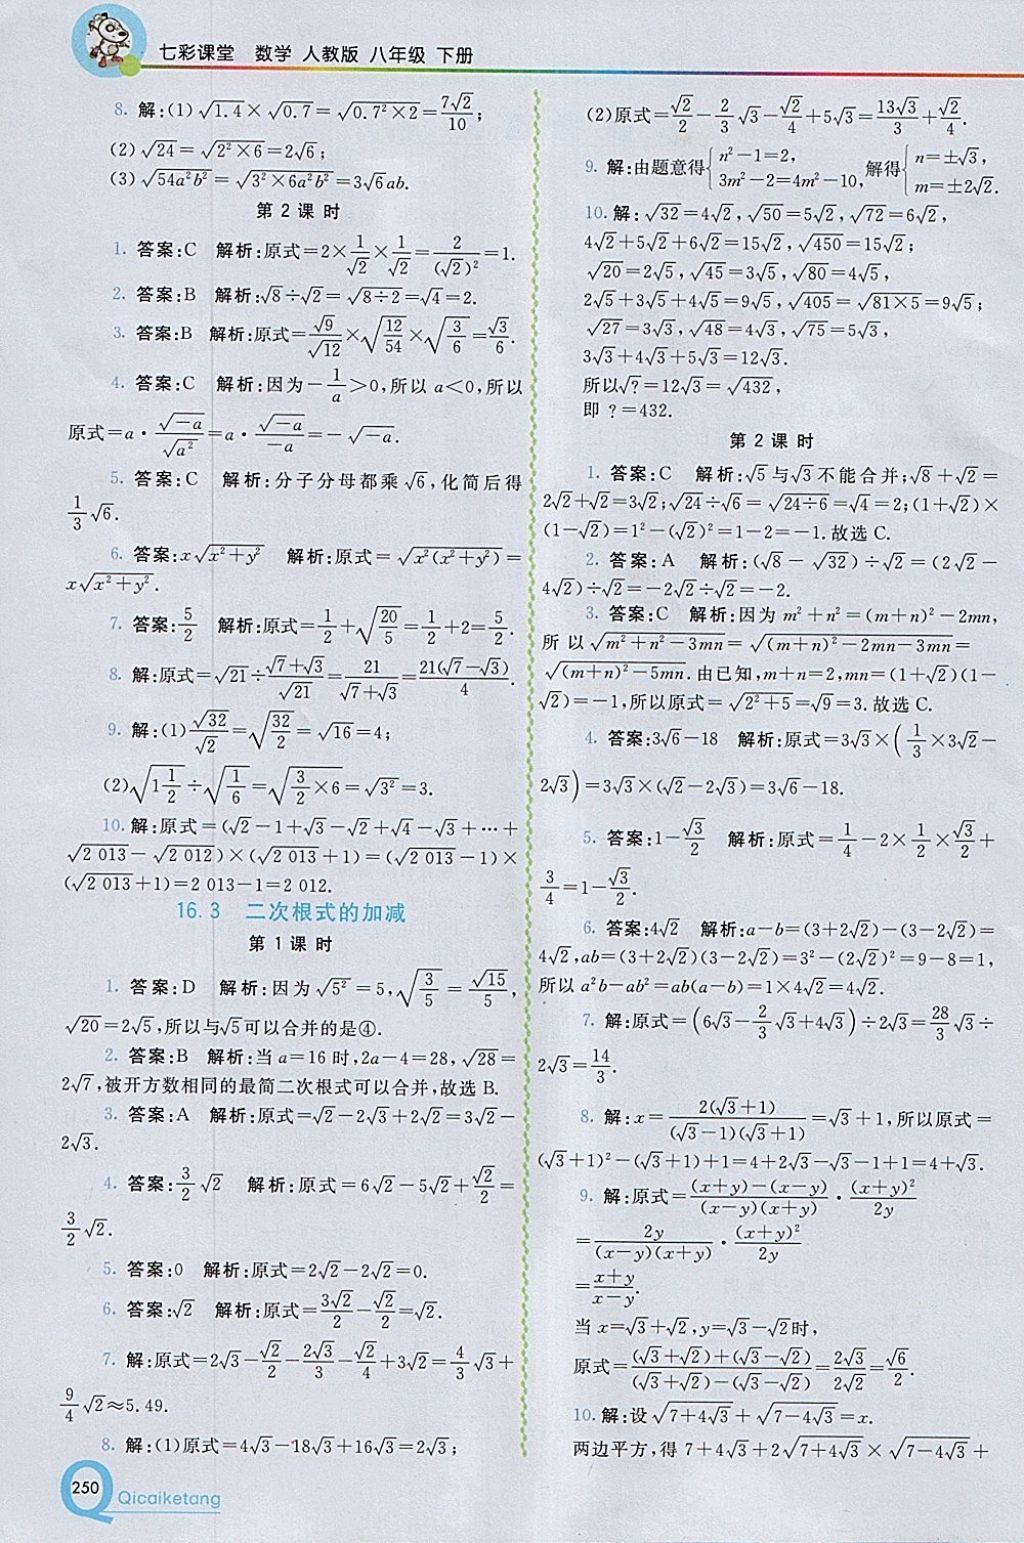 七彩课堂 数学 人教版 八年级 下册
8. 解:(1)√1.4×√0.7=√(0.7²×2)=7√2/10;
(2)√24=√(2²×6)=2√6;
(3)√(54a²b²)=√(3²×6a²b²)=3√6ab.
第 2 课 时
1. 答案:C 解析:原式=2×1/√2×1/√2=2/(√2)²=1.
2. 答案:B 解析:√8÷√2=√(8÷2)=√4=2.
3. 答案:B 解析:原式=√9/√12×√(12/54)×√(3/6)=√3/6.
4. 答案:C 解析:因为-1/a>0,所以 a<0,所以
原式=a·√(-a)/√(a²)=a·√(-a)/(-a)=-√(-a).
5. 答案:C 解析:分子分母都乘√6,化简后得
1/3√6.
6. 答案:x√(x²+y²) 解析:原式=√(x²(x²+y²))=
x√(x²+y²).
7. 答案:5/2 解析:原式=1/2+√(20/5)=1/2+2=5/2.
8. 解:原式=√21÷(√7+√3)/√21=21/(√7+√3)=21(√7-√3)/4.
9. 解:(1)√32/√2=√(32/2)=√16=4;
(2)√(1 1/2)÷√(1/6)=√(3/2×6)=√(3²)=3.
10. 解:原式=(√2-1+√3-√2+√4-√3+···+
√2 013-√2 012)×(√2 013+1)=(√2 013-1)×
(√2 013+1)=2 013-1=2 012.
16.3 二次根式的加减
第 1 课 时
1. 答案:D 解析:因为√(5²)=5,√(3/5)=√15/5,
√20=2√5,所以与√5可以合并的是④.
2. 答案:B 解析:当 a=16 时,2a-4=28,√28=
2√7,被开方数相同的最简二次根式可以合并,故选 B.
3. 答案:A 解析:原式=√2-2√3+2√2=3√2-
2√3.
4. 答案:3/2√2 解析:原式=6√2-5√2+√2/2=
3/2√2.
5. 答案:0 解析:原式=2√2-2√2=0.
6. 答案:√2 解析:原式=3√2/2-√2/2=√2.
7. 解:原式=2√3-√2/2-2√3/3-√2/4+3√2=4/3√3+
9/4√2≈5.49.
8. 解:(1)原式=4√3-18√3+16√3=2√3;
250
Qicaiketang
(2)原式=√2/2-2/3√3-√2/4+5√3=13√3/3+√2/4.
9. 解:由题意得{n²-1=2, 3m²-2=4m²-10, 解得{n=±√3, m=±2√2.
10. 解:√32=4√2,√50=5√2,√72=6√2,
4√2+5√2+6√2=15√2,√450=15√2;
√20=2√5,√45=3√5,√80=4√5,
2√5+3√5+4√5=9√5,√405=√(81×5)=9√5;
√27=3√3,√48=4√3,√75=5√3,
3√3+4√3+5√3=12√3.
所以√?=12√3=√432,
即 ?=432.
第 2 课 时
1. 答案:C 解析:√5与√3不能合并;√8+√2=
2√2+√2=3√2;√24÷√6=√(24÷6)=√4=2;(1+√2)×
(1-√2)=1²-(√2)²=1-2=-1.故选 C.
2. 答案:A 解析:(√8-√32)÷√2=(2√2-
4√2)÷√2=-2√2÷√2=-2.
3. 答案:C 解析:因为 m²+n²=(m+n)²-2mn,
所以√(m²+n²-3mn)=√((m+n)²-2mn-3mn)=
√((m+n)²-5mn).由已知,m+n=2,mn=(1+√2)(1-
√2)=-1,所以原式=√(2²+5)=√9=3.故选 C.
4. 答案:3√6-18 解析:原式=3√3×(1/3×3√2-
2√3)=3√3×(√2-2√3)=3√6-18.
5. 答案:1-√3/2 解析:原式=1/4-2×1/2×√3/2+
3/4=1-√3/2.
6. 答案:4√2 解析:a-b=(3+2√2)-(3-2√2)=
4√2,ab=(3+2√2)(3-2√2)=3²-(2√2)²=9-8=1,
所以 a²b-ab²=ab(a-b)=1×4√2=4√2.
7. 解:原式=(6√3-2/3√3+4√3)÷2√3=28/3√3÷
2√3=14/3.
8. 解:x=2(√3+1)/((√3-1)(√3+1))=√3+1,所以原式=
(√3+1)²-(√3+1)+1=4+2√3-√3-1+1=4+√3.
9. 解:原式=((x+y)-(x-y))/((x-y)(x+y))·(x+y)²/2y
=2y/((x-y)(x+y))·(x+y)²/2y
=(x+y)/(x-y).
当 x=√3+√2,y=√3-√2时,
原式=((√3+√2)+(√3-√2))/((√3+√2)-(√3-√2))=2√3/2√2=√6/2.
10. 解:设√(7+4√3)+√(7-4√3)=x.
两边平方,得 7+4√3+2√(7+4√3)×√(7-4√3)+